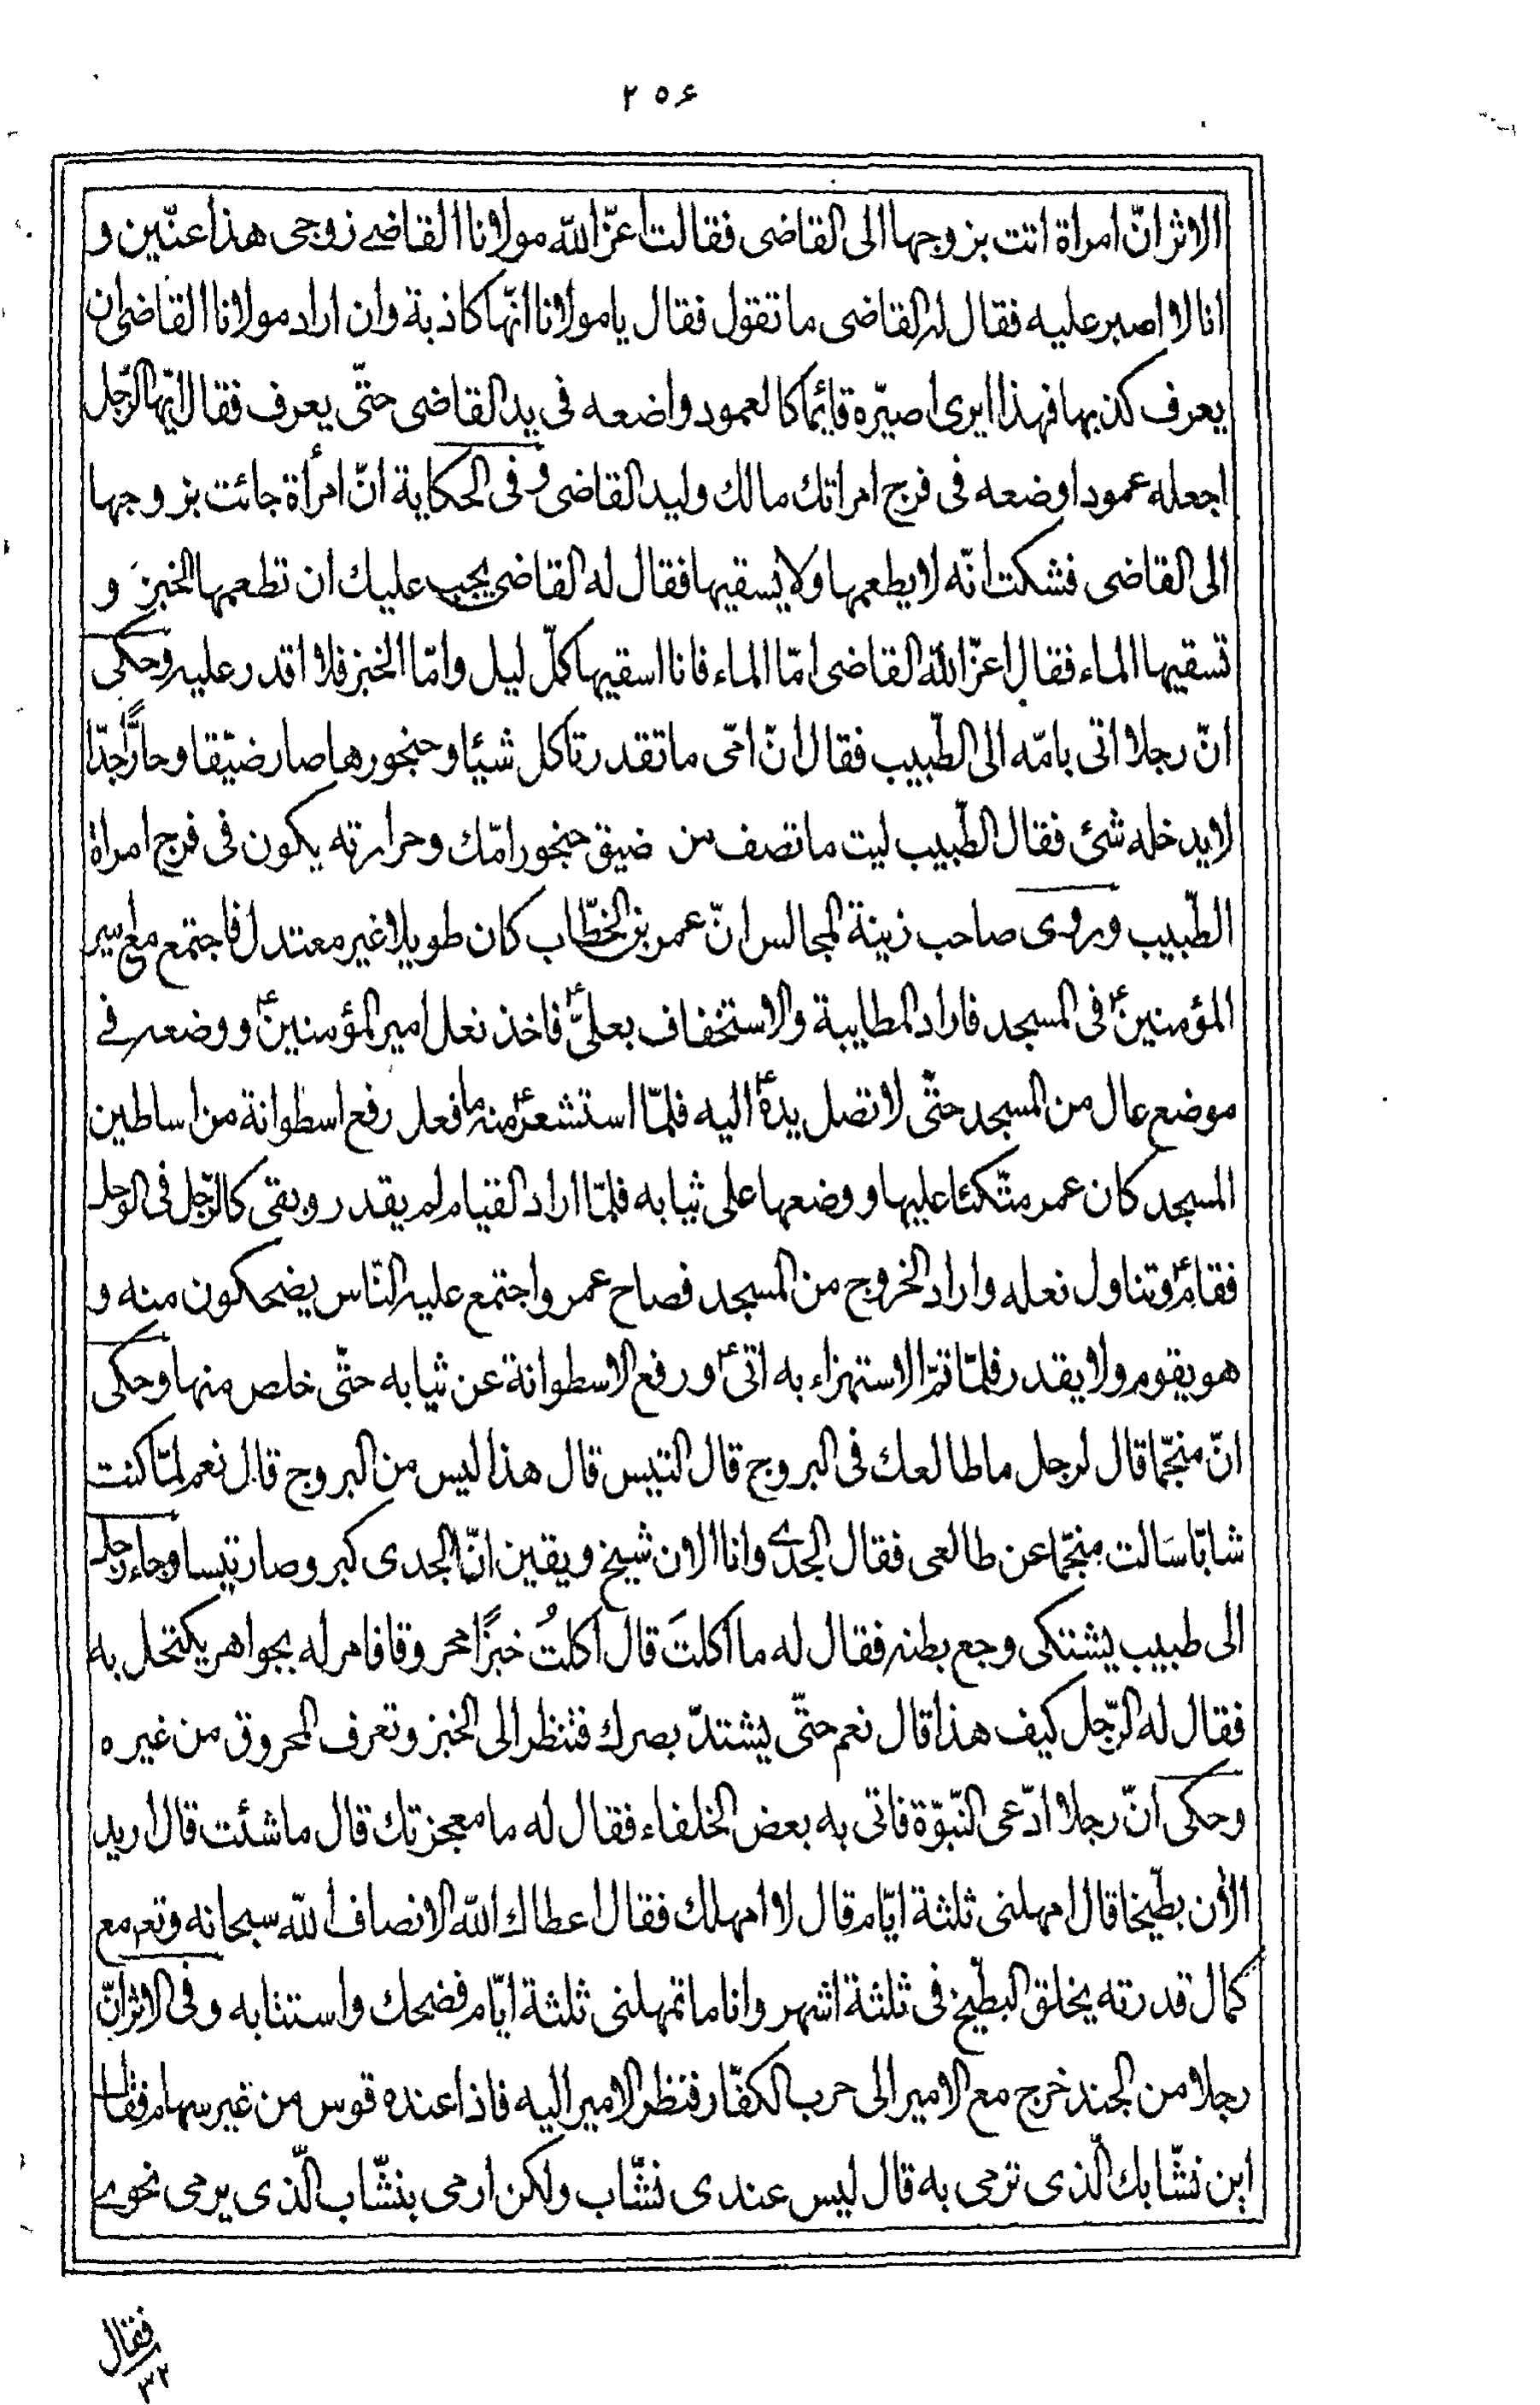 ٢٥۶
الاثر انّ امراة اتت بزوجها الى القاضى فقالت اعزّ الله مولانا القاضى زوجى هذا عنّين و
انا لا اصبر عليه فقال له القاضى ما تقول فقال يا مولانا انّها كاذبة وان اراد مولانا القاضى ان
يعرف كذبها فهذا ايرى اصيّره قائما كالعمود واضعه فى يد القاضى حتّى يعرف فقال ايّها الرّجل
اجعله عمودا وضعه فى فرج امراتك مالك وليد القاضى وفى الحكاية انّ امرأة جائت بزوجها
الى القاضى فشكت انّه لا يطعمها ولا يسقيها فقال له القاضى يجب عليك ان تطعمها الخبز و
تسقيها الماء فقال اعزّ الله القاضى امّا الماء فانا اسقيها كلّ ليل وامّا الخبز فلا اقدر عليه وحكى
انّ رجلا اتى بامّه الى الطّبيب فقال انّ امّى ما تقدر تاكل شيئا وحنجورها صار ضيّقا وحارًّا جدّا
لا يدخله شئ فقال الطّبيب ليت ما تصف من ضيق حنجور امّك وحرارته يكون فى فرج امراة
الطّبيب وروى صاحب زينة المجالس انّ عمر بن الخطّاب كان طويلا غير معتدل فاجتمع مع امير
المؤمنين ع فى المسجد فاراد المطايبة والاستخفاف بعلىّ ع فاخذ نعل امير المؤمنين ع ووضعه فى
موضع عال من المسجد حتّى لا تصل يده ع اليه فلمّا استشعر ع منه ما فعل رفع اسطوانة من اساطين
المسجد كان عمر متّكئا عليها ووضعها على ثيابه فلمّا اراد القيام لم يقدر وبقى كالرّجل فى الوحل
فقام ع وتناول نعله واراد الخروج من المسجد فصاح عمر واجتمع عليه النّاس يضحكون منه و
هو يقوم ولا يقدر فلمّا تمّ الاستهزاء به اتى ع ورفع الاسطوانة عن ثيابه حتّى خلص منها وحكى
انّ منجّما قال لرجل ما طالعك فى البروج قال التيس قال هذا ليس من البروج قال نعم لمّا كنت
شابّا سَالت منجّما عن طالعى فقال الجدى وانا الان شيخ ويقين انّ الجدى كبر وصار تيسا وجاء رجل
الى طبيب يشتكى وجع بطنه فقال له ما اكلتَ قال اكلتُ خبزًا محروقا فامر له بجواهر يكتحل به
فقال له الرّجل كيف هذا قال نعم حتّى يشتدّ بصرك فتنظر الى الخبز وتعرف المحروق من غيره
وحكى انّ رجلا ادّعى النّبوّة فاتى به بعض الخلفاء فقال له ما معجزتك قال ما شئت قال اريد
الأن بطّيخا قال امهلنى ثلثة ايّام قال لا امهلك فقال اعطاك الله الانصاف الله سبحانه وتعم مع
كمال قدرته يخلق البطّيخ فى ثلثة اشهر وانا ما تمهلنى ثلثة ايّام فضحك واستتابه وفى الاثر انّ
رجلا من الجند خرج مع الامير الى حرب الكفّار فنظر الامير اليه فاذا عنده قوس من غير سهام فقال
اين نشّابك الّذى ترمى به قال ليس عندى نشّاب ولكن ارمى بنشّاب الّذى يرمى نحوى
فقال
٣٢